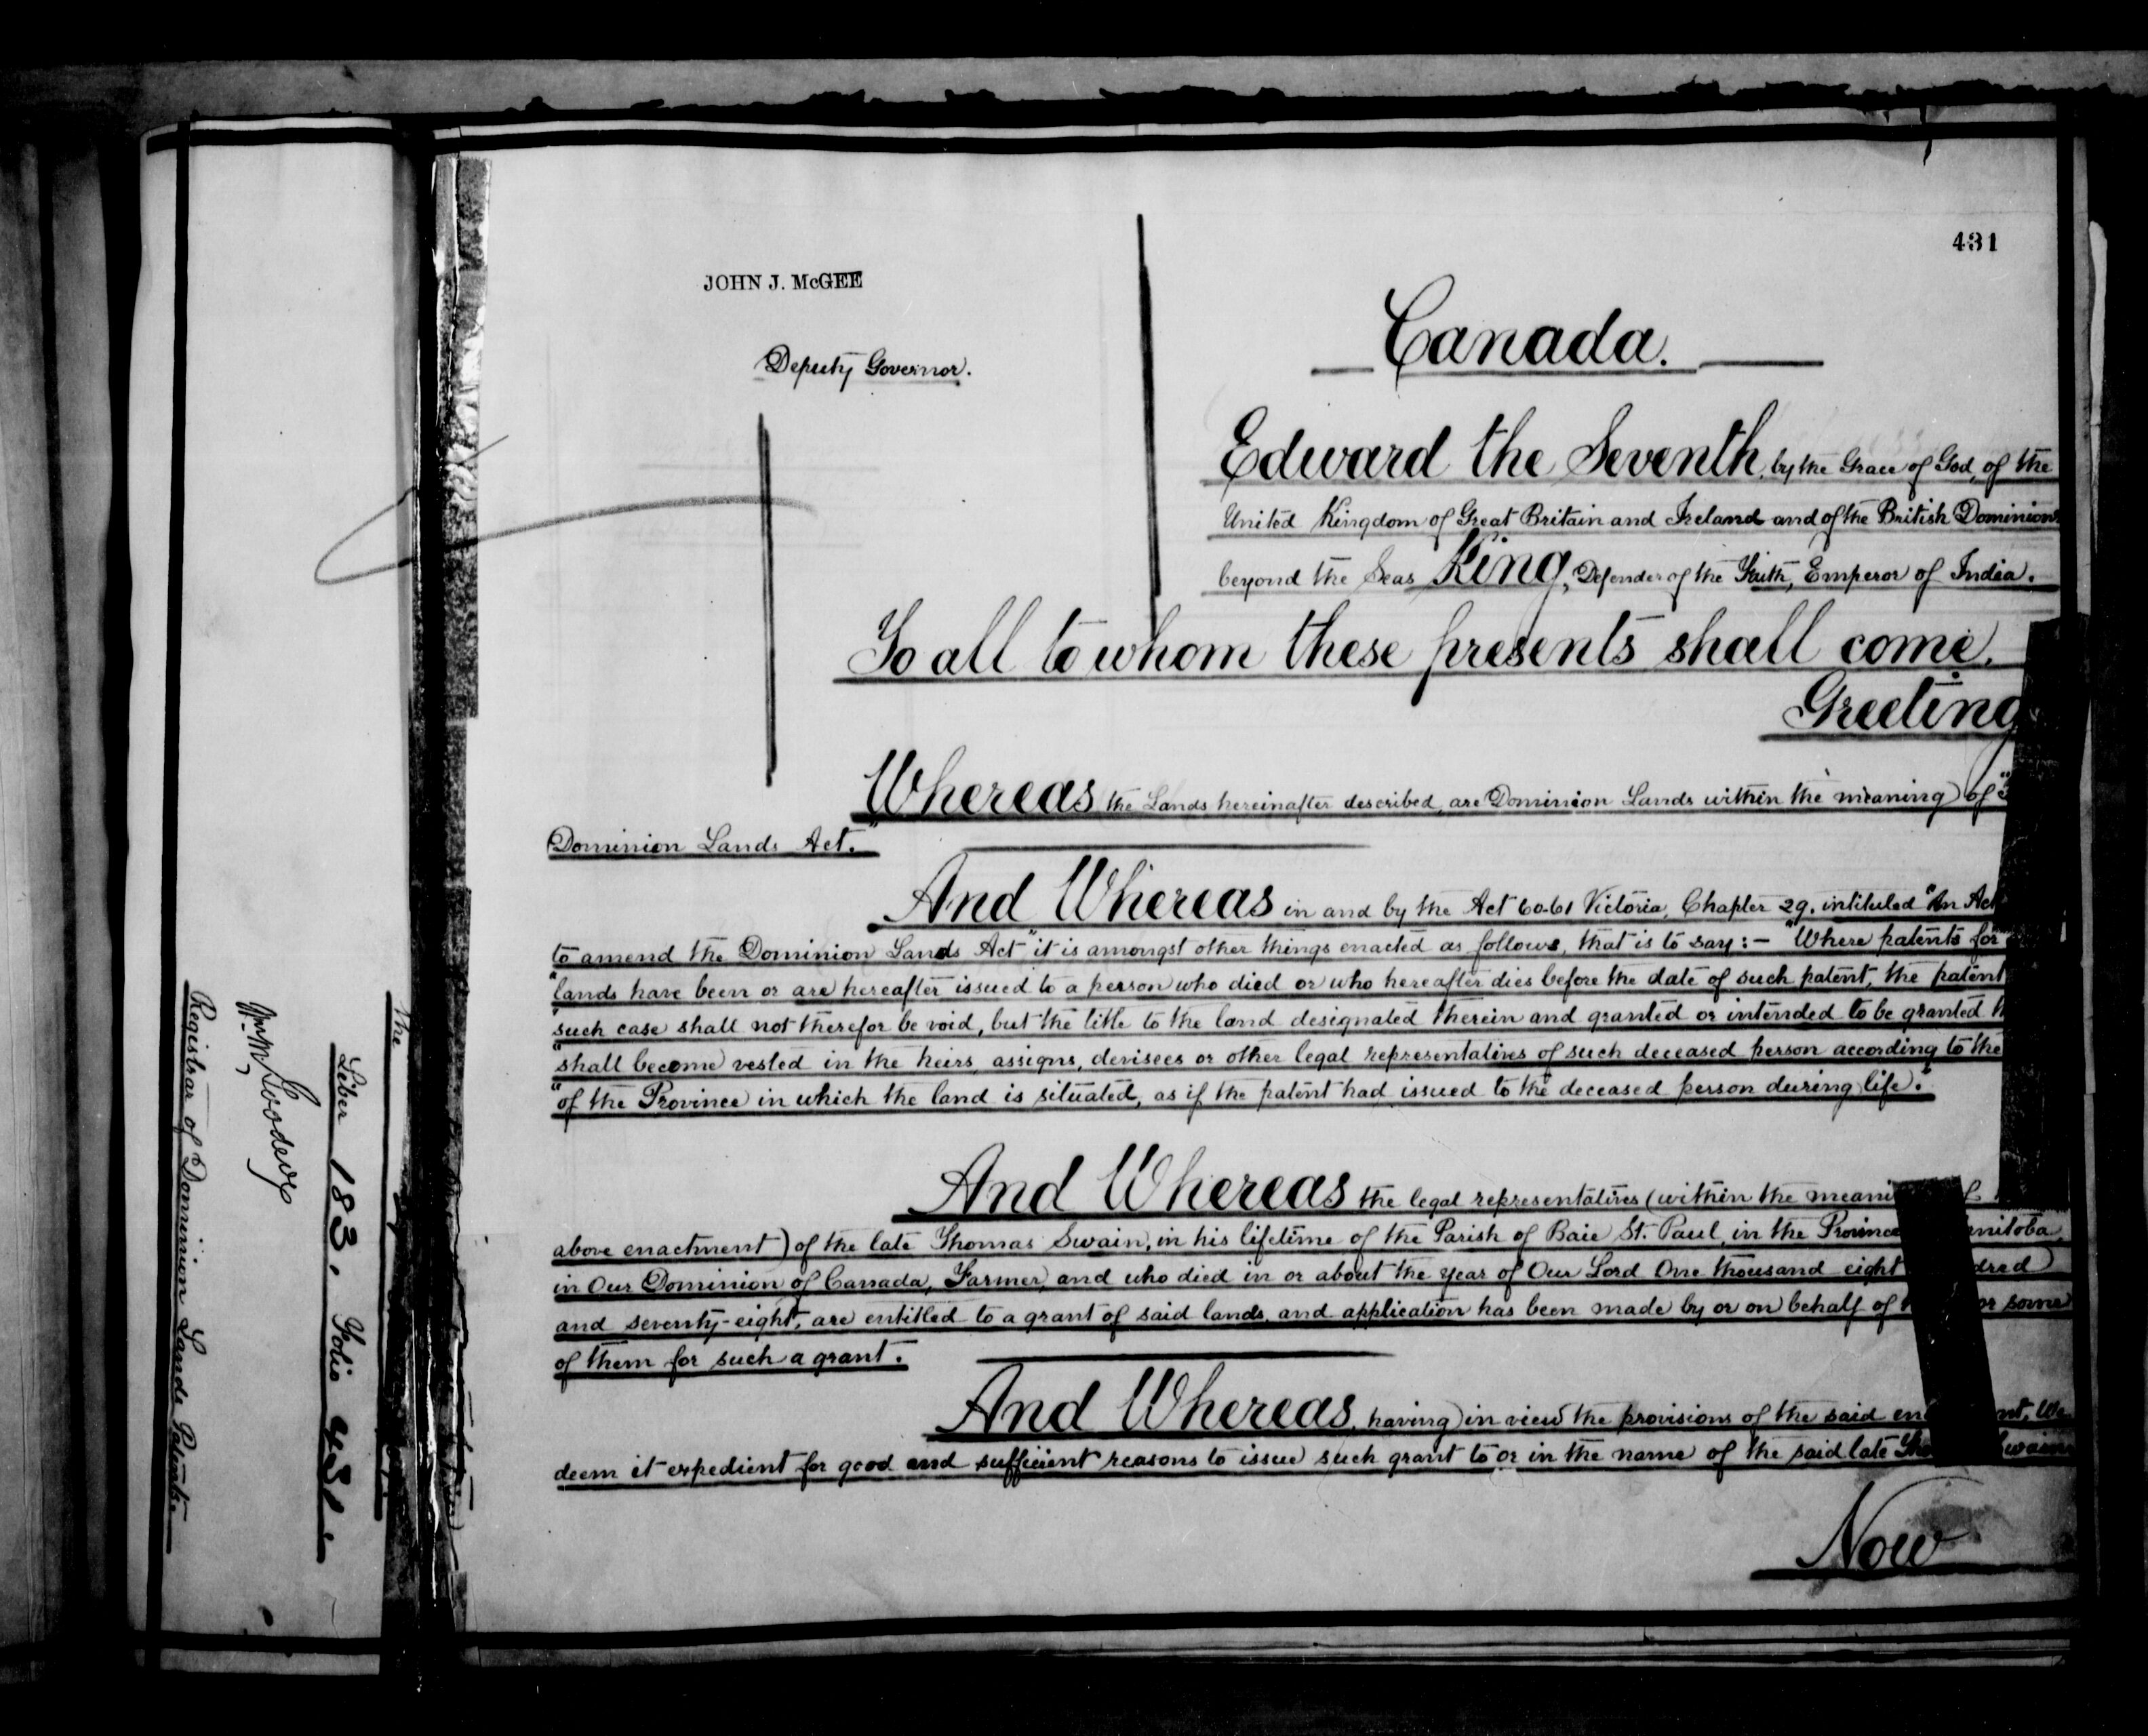 431
JOHN J. McGEE
Deputy Governor.
Canada.
Edward the Seventh, by the Grace of God, of the
United Kingdom of Great Britain and Ireland and of the British Dominions
beyond the Seas King, Defender of the Faith, Emperor of India.
To all to whom these presents shall come,
Greeting
Whereas the Lands hereinafter described, are Dominion Lands within the meaning of "
Dominion Lands Act."
And Whereas in and by the Act 60-61 Victoria, Chapter 29, intituled "An Act
to amend the Dominion Lands Act" it is amongst other things enacted as follows, that is to say:— "Where patents for
"lands have been or are hereafter issued to a person who died or who hereafter dies before the date of such patent, the patent
"such case shall not therefor be void, but the title to the land designated therein and granted or intended to be granted
"shall become vested in the heirs, assigns, devisees or other legal representatives of such deceased person according to the
"of the Province in which the land is situated, as if the patent had issued to the deceased person during life."
And Whereas the legal representatives (within the
above enactment) of the late Thomas Swain, in his lifetime of the Parish of Baie St. Paul, in the
in Our Dominion of Canada, Farmer, and who died in or about the year of Our Lord One thousand eight
and seventy-eight, are entitled to a grant of said lands, and application has been made by or on behalf of or some
of them for such a grant.
And Whereas, having in view the provisions of the said We
deem it expedient for good and sufficient reasons to issue such grant to or in the name of the said late
Now
the
Liber 183, Folio 431.
Registrar of Dominion Lands Patents